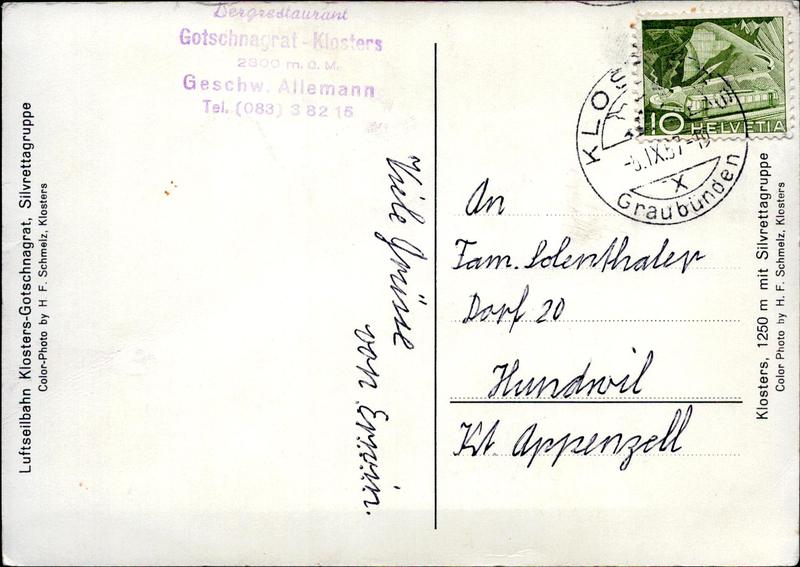 Bergrestaurant
Gotschnagrat - Klosters
2300 m.ü.M.
Geschw. Allemann
Tel. (083) 3 82 15
Luftseilbahn Klosters-Gotschnagrat, Silvrettagruppe
Color-Photo by H. F. Schmelz, Klosters
Viele Grüsse
von Erwin.
10 HELVETIA
KLOS
-5.IX.57-
X
Graubünden
An
Fam. Solenthaler
Dorf 20
Hundwil
Kt. Appenzell
Klosters, 1250 m mit Silvrettagruppe
Color Photo by H. F. Schmelz, Klosters